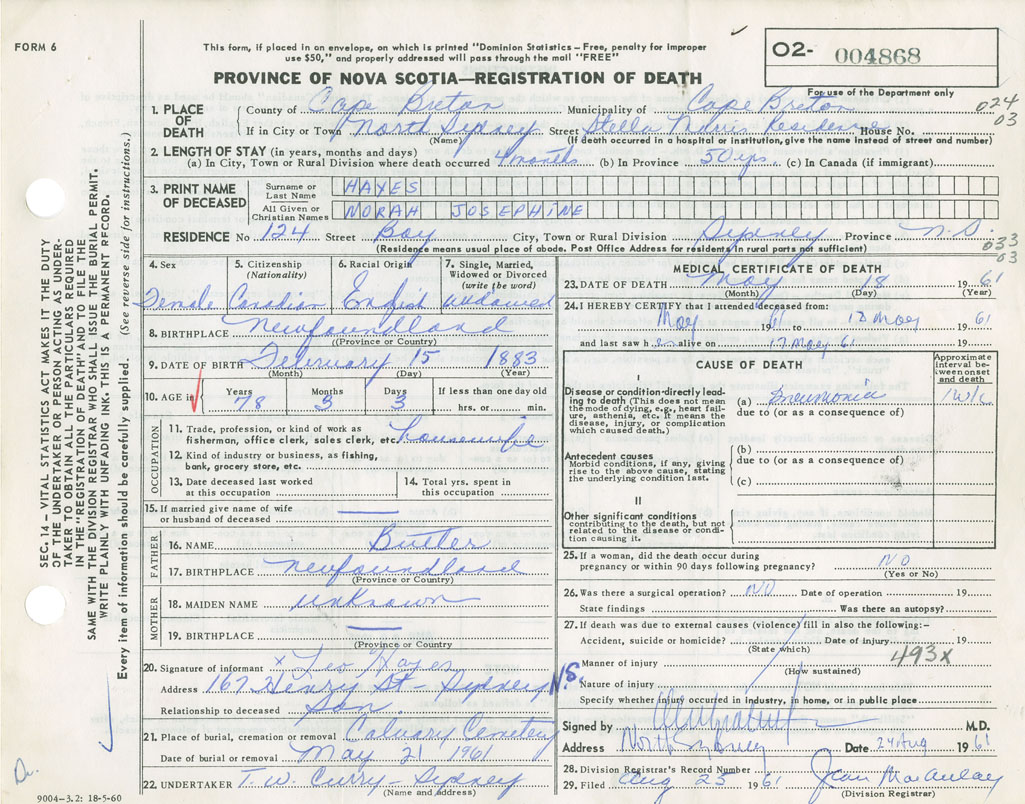 FORM 6
This form, if placed in an envelope, on which is printed "Dominion Statistics – Free, penalty for improper
use $50," and properly addressed will pass through the mail "FREE"
PROVINCE OF NOVA SCOTIA—REGISTRATION OF DEATH
O2- 004868
For use of the Department only
1. PLACE OF DEATH County of Cape Breton Municipality of Cape Breton 024 03
If in City or Town North Sydney Street Stella Maris Residence House No.
(Name) (If death occurred in a hospital or institution, give the name instead of street and number)
2. LENGTH OF STAY (in years, months and days)
(a) In City, Town or Rural Division where death occurred 4 months (b) In Province 50 yrs. (c) In Canada (if immigrant)
3. PRINT NAME OF DECEASED Surname or Last Name HAYES
All Given or Christian Names NORAH JOSEPHINE
RESIDENCE No 124 Street Bay City, Town or Rural Division Sydney Province N.S. 033 03
(Residence means usual place of abode. Post Office Address for residents in rural parts not sufficient)
4. Sex Female
5. Citizenship (Nationality) Canadian
6. Racial Origin English
7. Single, Married, Widowed or Divorced (write the word) Widowed
8. BIRTHPLACE Newfoundland
(Province or Country)
9. DATE OF BIRTH February 15 1883
(Month) (Day) (Year)
10. AGE in Years 78 Months 3 Days 3 If less than one day old hrs. or min.
OCCUPATION
11. Trade, profession, or kind of work as
fisherman, office clerk, sales clerk, etc. housewife
12. Kind of industry or business, as fishing,
bank, grocery store, etc.
13. Date deceased last worked
at this occupation
14. Total yrs. spent in
this occupation
15. If married give name of wife
or husband of deceased
FATHER
16. NAME Butler
17. BIRTHPLACE Newfoundland
(Province or Country)
MOTHER
18. MAIDEN NAME unknown
19. BIRTHPLACE
(Province or Country
20. Signature of informant x Leo Hayes
Address 167 Henry St - Sydney N.S.
Relationship to deceased Son
21. Place of burial, cremation or removal Calvary Cemetery
Date of burial or removal May 21 1961
22. UNDERTAKER T.W. Curry - Sydney
(Name and address)
9004-3.2: 18-5-60
MEDICAL CERTIFICATE OF DEATH
23. DATE OF DEATH May 18 1961
(Month) (Day) (Year)
24. I HEREBY CERTIFY that I attended deceased from:
May 1961 to 18 May 1961
and last saw her alive on 17 May 61 19
CAUSE OF DEATH
Approximate interval between onset and death
I
Disease or condition directly leading to death (This does not mean the mode of dying, e.g., heart failure, asthenia, etc. It means the disease, injury, or complication which caused death.)
(a) Pneumonia 1 wk
due to (or as a consequence of)
Antecedent causes
Morbid conditions, if any, giving rise to the above cause, stating the underlying condition last.
(b)
due to (or as a consequence of)
(c)
II
Other significant conditions
contributing to the death, but not related to the disease or condition causing it.
25. If a woman, did the death occur during
pregnancy or within 90 days following pregnancy? NO
(Yes or No)
26. Was there a surgical operation? NO Date of operation 19
State findings Was there an autopsy?
27. If death was due to external causes (violence) fill in also the following:-
Accident, suicide or homicide? Date of injury 19
(State which)
493X
Manner of injury
(How sustained)
Nature of injury
Specify whether injury occurred in industry, in home, or in public place
Signed by M.D.
Address North Sydney Date 24 Aug 1961
28. Division Registrar's Record Number
29. Filed Aug 25 1961 Jean MacAulay
(Division Registrar)
SEC. 14 – VITAL STATISTICS ACT MAKES IT THE DUTY
OF THE UNDERTAKER OR PERSON ACTING AS UNDERTAKER TO OBTAIN ALL THE PARTICULARS REQUIRED
IN THE "REGISTRATION OF DEATH" AND TO FILE THE
SAME WITH THE DIVISION REGISTRAR WHO SHALL ISSUE THE BURIAL PERMIT.
WRITE PLAINLY WITH UNFADING INK. THIS IS A PERMANENT RECORD.
Every item of information should be carefully supplied. (See reverse side for instructions.)